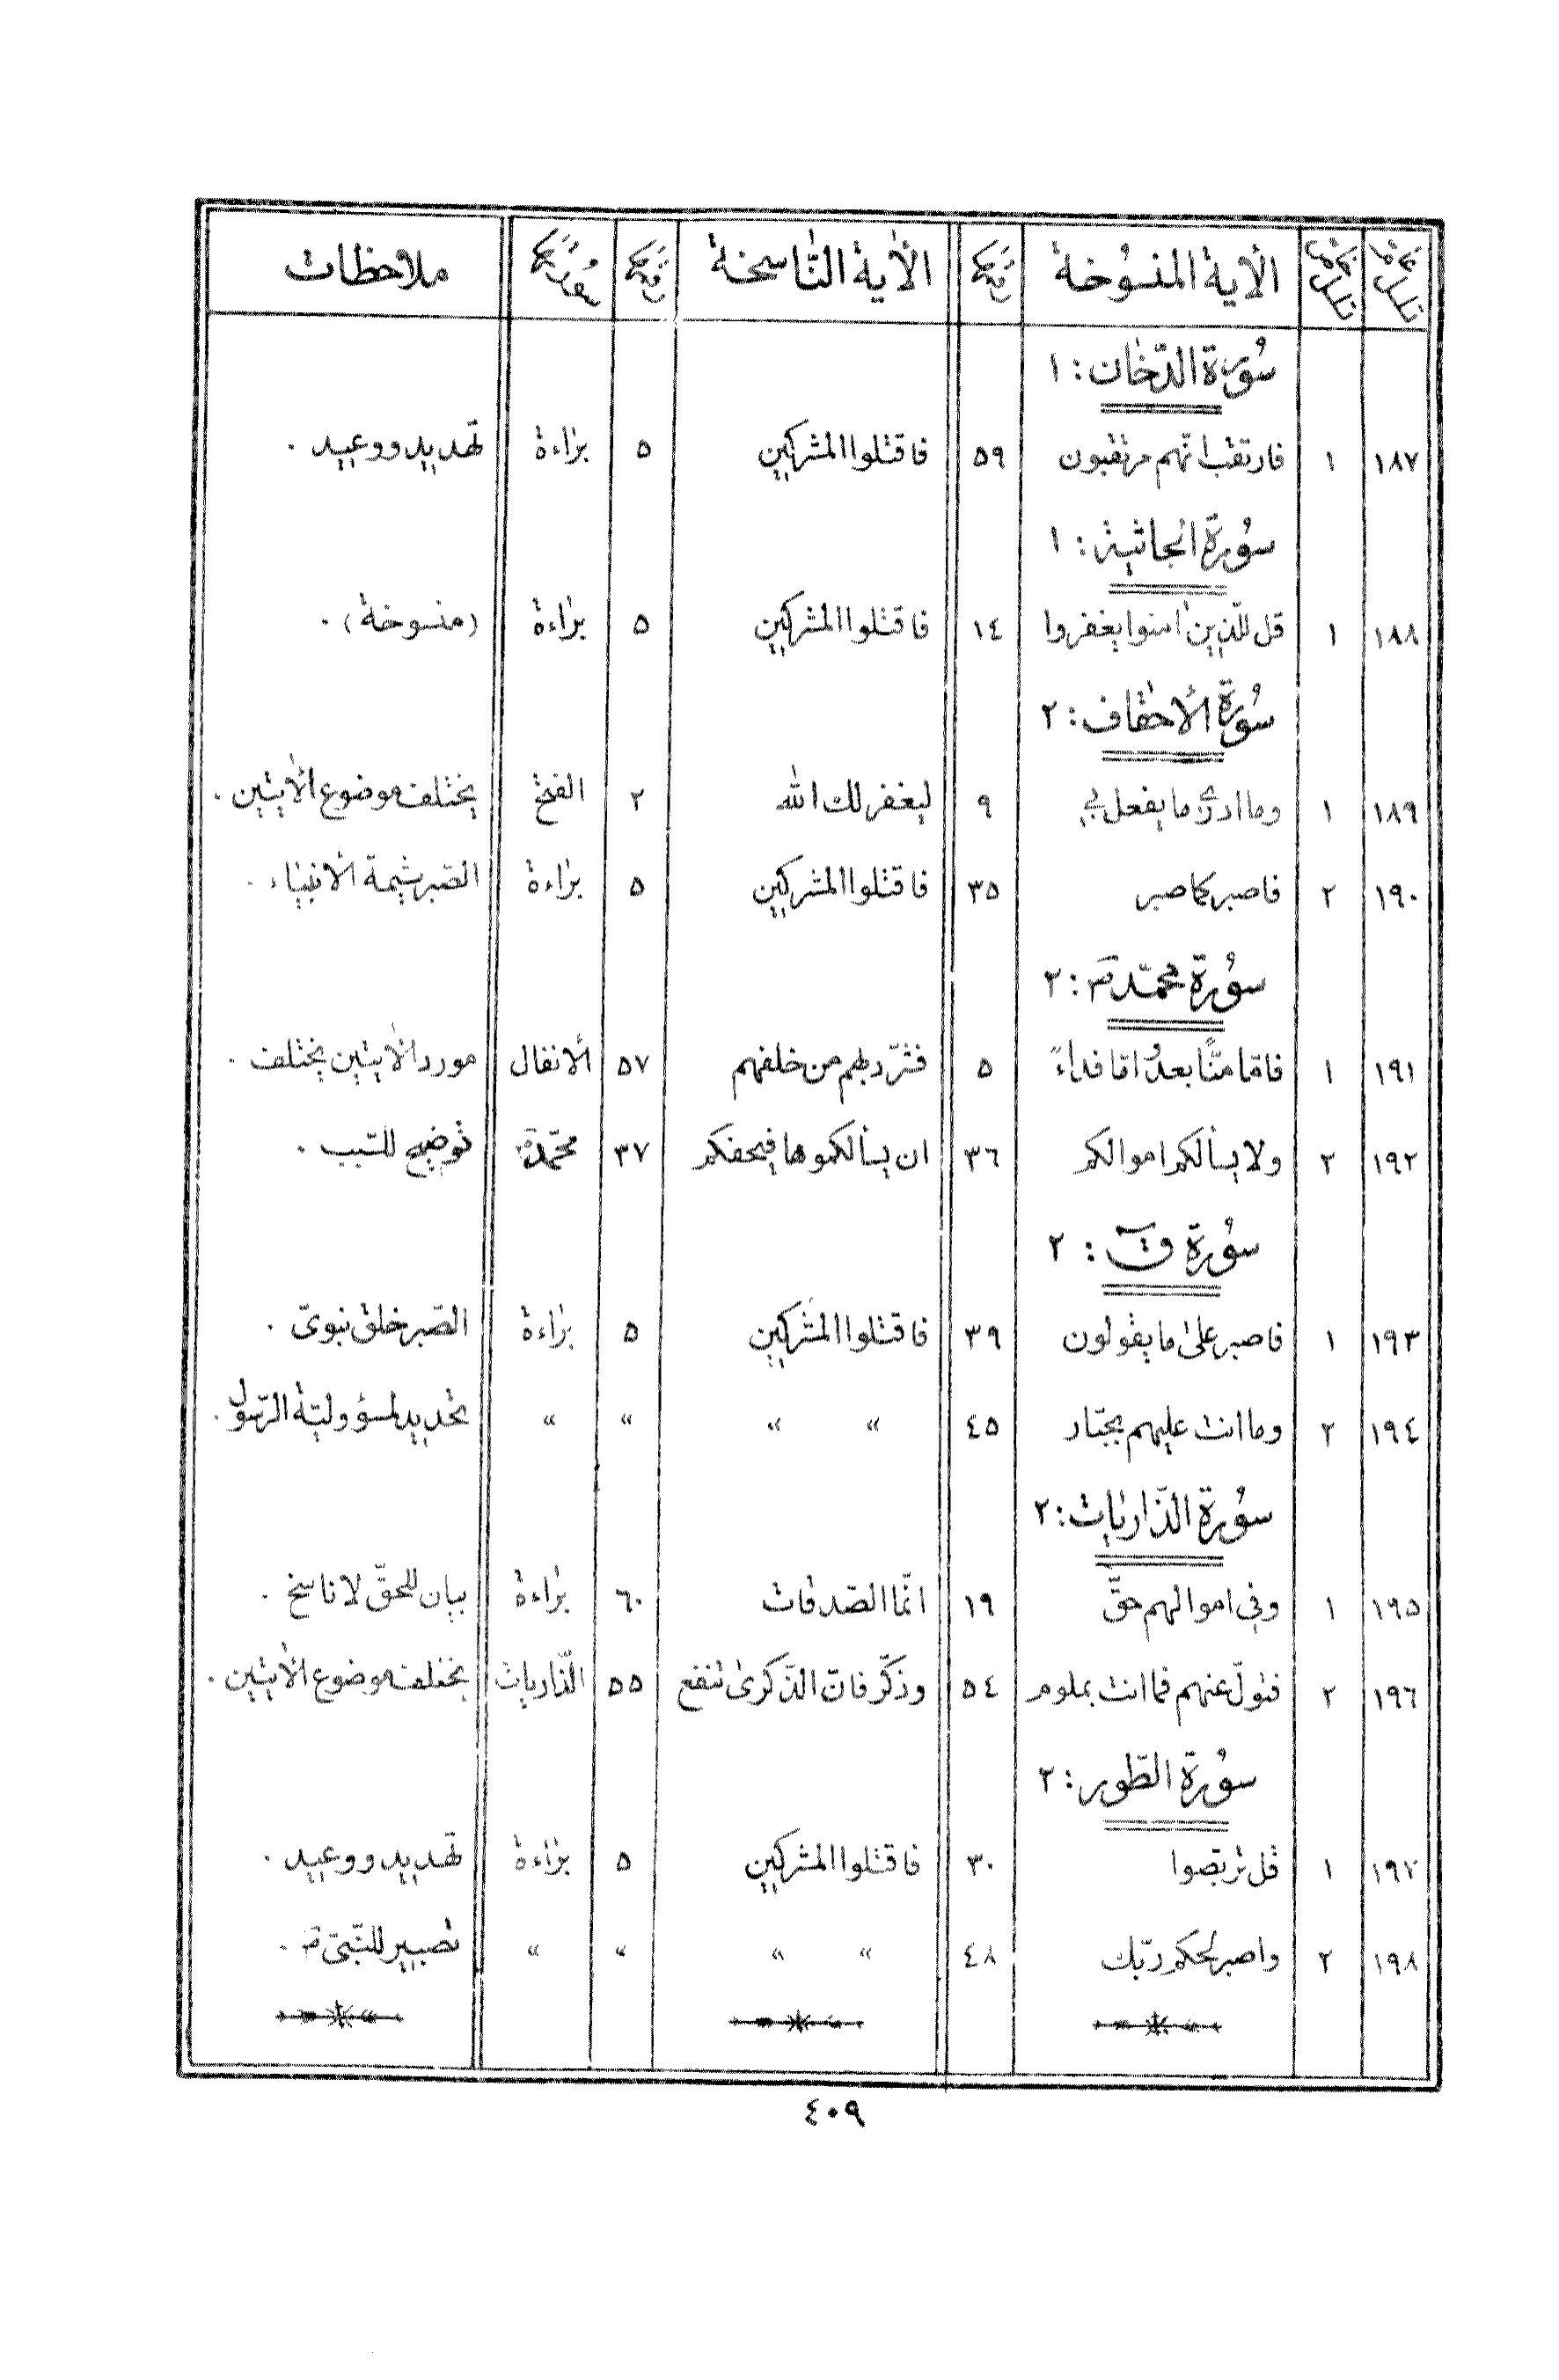 الآية المنسوخة رقمها الآية الناسخة رقمها سورتها ملاحظات
سورة الدّخان : ١
١٨٧ ١ فارتقب انّهم مرتقبون ٥٩ فاقتلوا المشركين ٥ براءة تهديد ووعيد .
سورة الجاثية : ١
١٨٨ ١ قل للّذين امنوا يغفروا ١٤ فاقتلوا المشركين ٥ براءة (منسوخة) .
سورة الأحقاف : ٢
١٨٩ ١ وما ادري ما يفعل بي ٩ ليغفر لك الله ٢ الفتح يختلف موضوع الآيتين .
١٩٠ ٢ فاصبر كما صبر ٣٥ فاقتلوا المشركين ٥ براءة الصّبر شيمة الأنبياء .
سورة محمّد ص : ٢
١٩١ ١ فامّا منّاً بعدُ امّا فداءً ٥ فشرّد بهم من خلفهم ٥٧ الأنفال مورد الآيتين يختلف .
١٩٢ ٢ ولا يسألكم اموالكم ٣٦ ان يسألكموها فيحفكم ٣٧ محمّد ص توضيح للسّبب .
سورة قٓ : ٢
١٩٣ ١ فاصبر على ما يقولون ٣٩ فاقتلوا المشركين ٥ براءة الصّبر خلق نبويّ .
١٩٤ ٢ وما انت عليهم بجبّار ٤٥ " " " " تحديد لمسؤوليّة الرّسول .
سورة الذّاريات : ٢
١٩٥ ١ وفي اموالهم حقّ ١٩ انّما الصّدقات ٦٠ براءة بيان للحقّ لا ناسخ .
١٩٦ ٢ فتولّ عنهم فما انت بملوم ٥٤ وذكّر فانّ الذّكرى تنفع ٥٥ الذّاريات يختلف موضوع الآيتين .
سورة الطّور : ٢
١٩٧ ١ قل تربّصوا ٣٠ فاقتلوا المشركين ٥ براءة تهديد ووعيد .
١٩٨ ٢ واصبر لحكم ربّك ٤٨ " " " " تصبير للنّبيّ ص .
٤٠٩